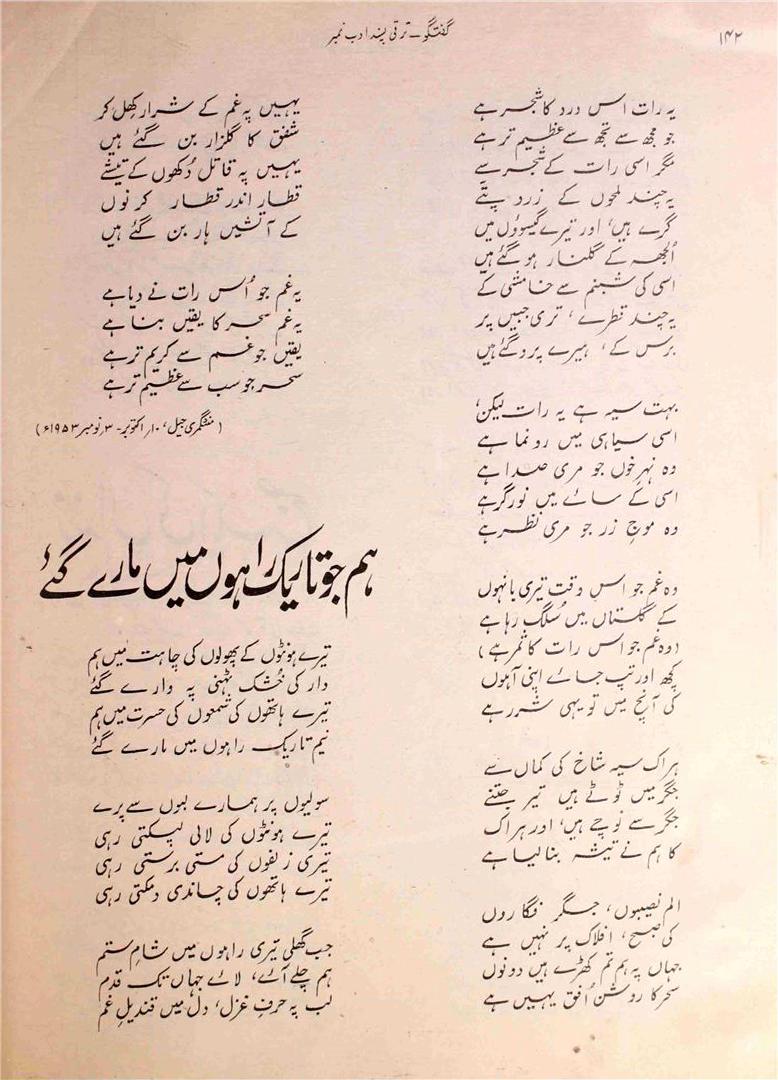 ۱۴۲
گفتگو ـ ترقی پسند ادب نمبر
یہ رات اس درد کا شجر ہے
جو مجھ سے تجھ سے عظیم تر ہے
مگر اسی رات کے شجر سے
یہ چند لمحوں کے زرد پتے
گرے ہیں، اور تیرے گیسوؤں میں
الجھ کے گلنار ہو گئے ہیں
اسی کی شبنم سے خامشی کے
یہ چند قطرے، تری جبیں پر
برس کے، ہیرے پرو گئے ہیں
بہت سیہ ہے یہ رات لیکن،
اسی سیاہی میں رونما ہے
وہ نہرِ خوں جو مری صدا ہے
اسی کے سائے میں نور گر ہے
وہ موجِ زر جو مری نظر ہے
وہ غم جو اس وقت تیری بانہوں
کے گلستاں میں سُلگ رہا ہے
(وہ غم جو اس رات کا ثمر ہے)
کچھ اور تپ جائے اپنی آہوں
کی آنچ میں تو یہی شرر ہے
ہر اک سیہ شاخ کی کماں سے
جگر میں ٹوٹے ہیں تیر جتنے
جگر سے نوچے ہیں، اور ہر اک
کا ہم نے تیشہ بنا لیا ہے
الم نصیبوں، جگر فگاروں
کی صبح، افلاک پر نہیں ہے
جہاں پہ ہم تم کھڑے ہیں دونوں
سحر کا روشن اُفق یہیں ہے
یہیں پہ غم کے شرار کھِل کر
شفق کا گلزار بن گئے ہیں
یہیں پہ قاتل دُکھوں کے تیشے
قطار اندر قطار کرنوں
کے آتشیں ہار بن گئے ہیں
یہ غم جو اُس رات نے دیا ہے
یہ غم سحر کا یقیں بنا ہے
یقیں جو غم سے کریم تر ہے
سحر جو سب سے عظیم تر ہے
(منٹگمری جیل، ۱۰؍ اکتوبر ـ ۳؍ نومبر ۱۹۵۳ء)
ہم جو تاریک راہوں میں مارے گئے
تیرے ہونٹوں کے پھولوں کی چاہت میں ہم
دار کی خُشک ٹہنی پہ وارے گئے
تیرے ہاتھوں کی شمعوں کی حسرت میں ہم
نیم تاریک راہوں میں مارے گئے
سولیوں پر ہمارے لبوں سے پرے
تیرے ہونٹوں کی لالی لپکتی رہی
تیری زلفوں کی مستی برستی رہی
تیرے ہاتھوں کی چاندی دمکتی رہی
جب گھلی تیری راہوں میں شامِ ستم
ہم چلے آئے، لائے جہاں تک قدم
لب پہ حرفِ غزل، دل میں قندیلِ غم